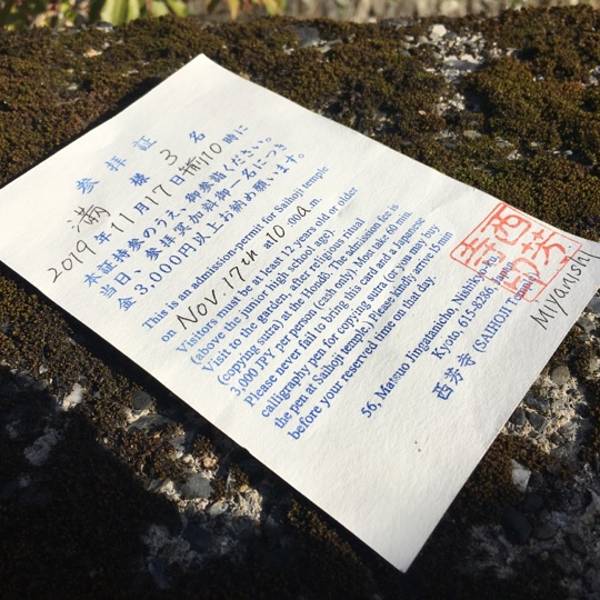 参拝証
満 様 3 名
2019年11月17日 前10時に
本証持参のうえ、御参詣ください。
当日、参拝冥加料御一名につき
金3,000円以上お納め願います。
This is an admission-permit for Saihoji temple
on Nov. 17th at 10:00a.m.
Visitors must be at least 12-years old or older
(above the junior high school age).
Visit to the garden, after religious ritual
(copying sutra) at the Hondō, the admission fee is
3,000 JPY per person (cash only). Most take 60 min.
Please never fail to bring this card and a Japanese
calligraphy pen for copying sutra (or you may buy
the pen at Saihoji temple.) Please kindly arrive 5 min
before your reserved time on that day.
56, Matsuo Jingatanicho, Nishikyo-ku,
Kyoto, 615-8286 Japan
西芳寺 (SAIHOJI Temple)
西芳
寺印
MIYANISHI